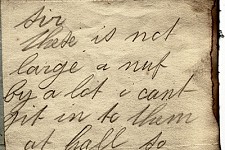 sir
these is not
large a nuf
by a lot i cant
git in to them
at hall so